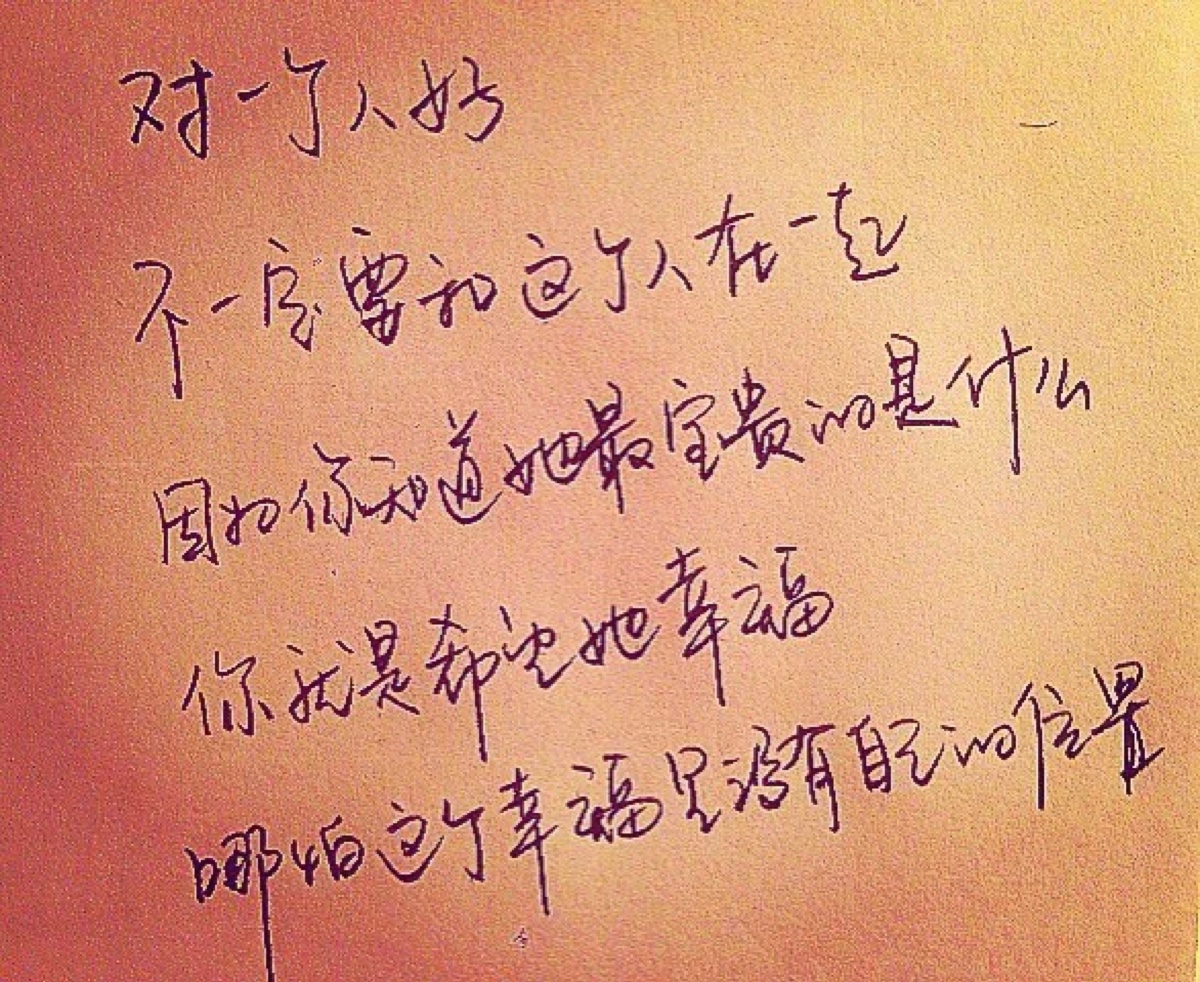 对一个人好
不一定要和这个人在一起
因为你知道她最宝贵的是什么
你就是希望她幸福
哪怕这个幸福里没有自己的位置